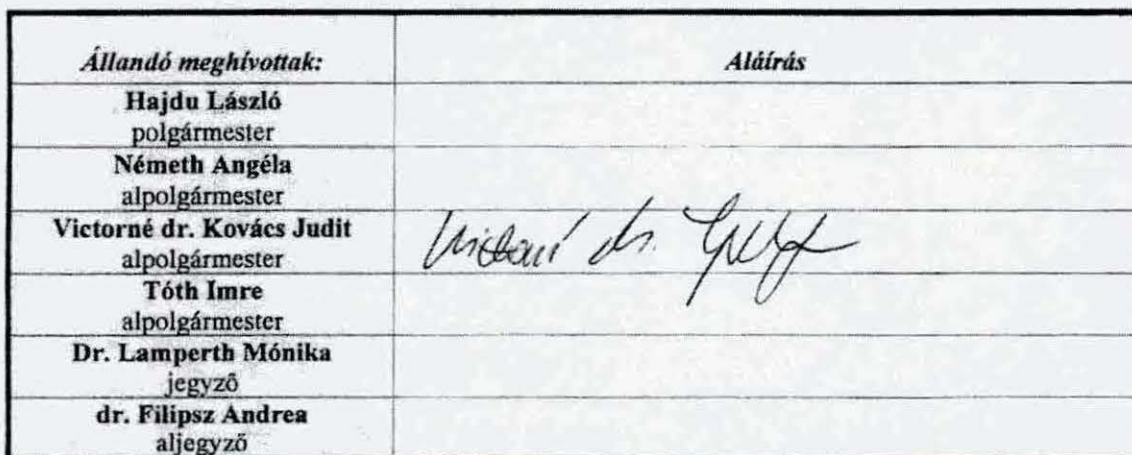 Állandó meghívottak: Aláírás
Hajdu László
polgármester
Németh Angéla
alpolgármester
Victorné dr. Kovács Judit
alpolgármester
Victorné dr.
Tóth Imre
alpolgármester
Dr. Lamperth Mónika
jegyző
dr. Filipsz Andrea
aljegyző